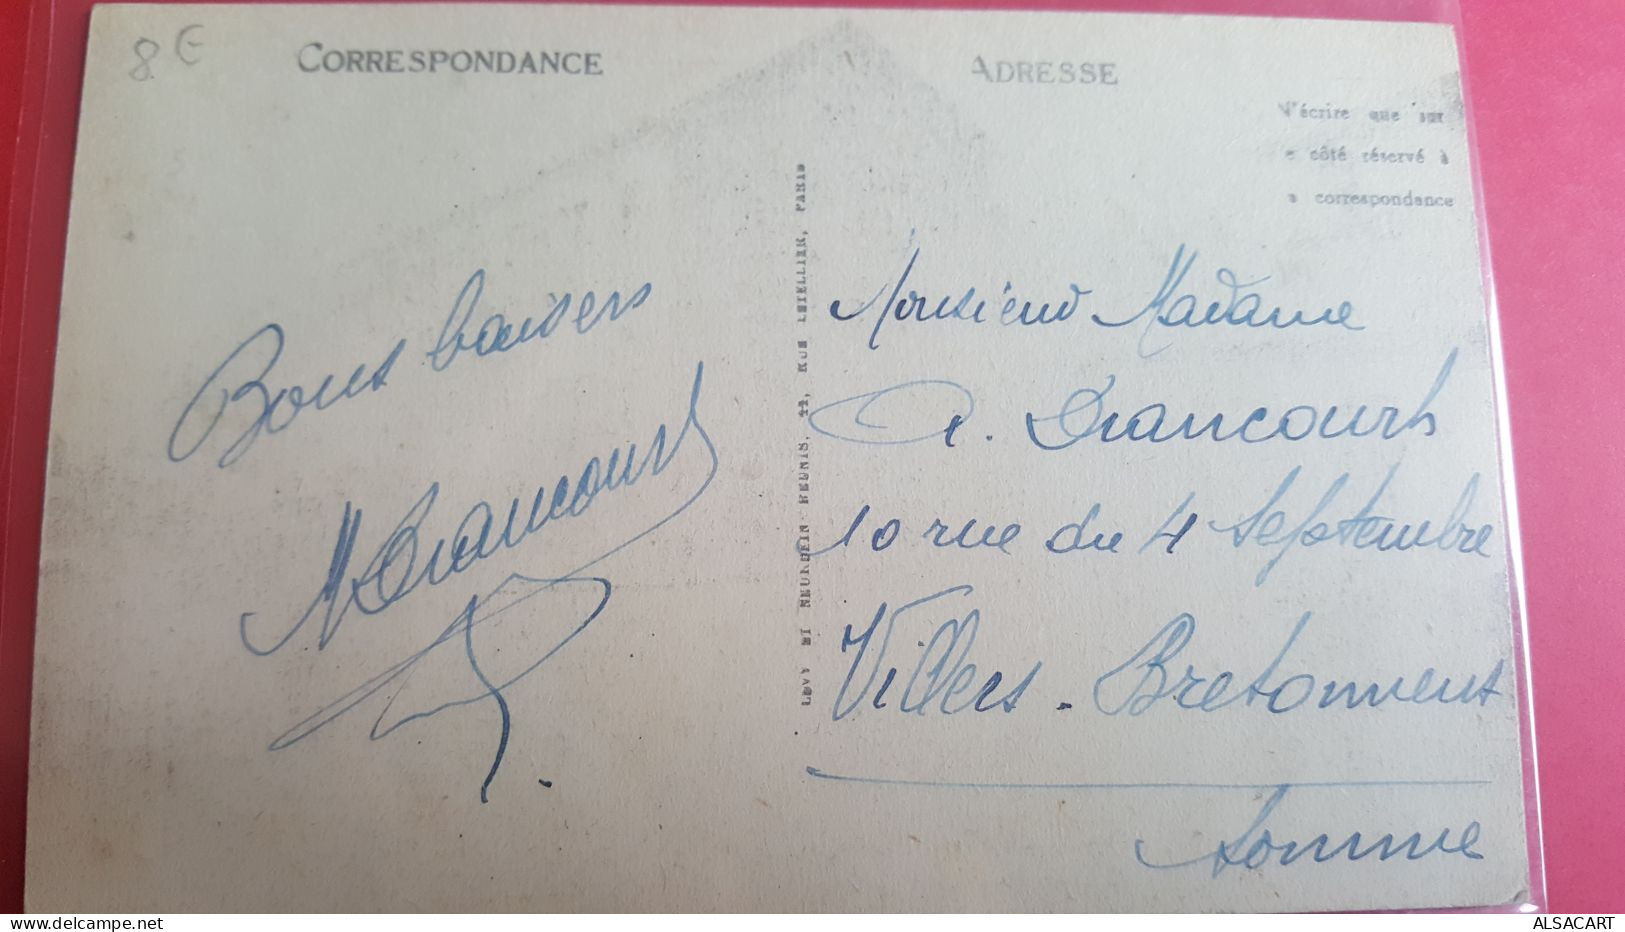 8 €
CORRESPONDANCE
ADRESSE
N'écrire que sur
e côté réservé à
a correspondance
LEVY ET NEURDEIN REUNIS, 44, RUE LETELLIER, PARIS
Bons baisers
Monsieur Madame
A. Drancourt
10 rue du 4 Septembre
Villers-Bretonneux
Somme
ALSACART